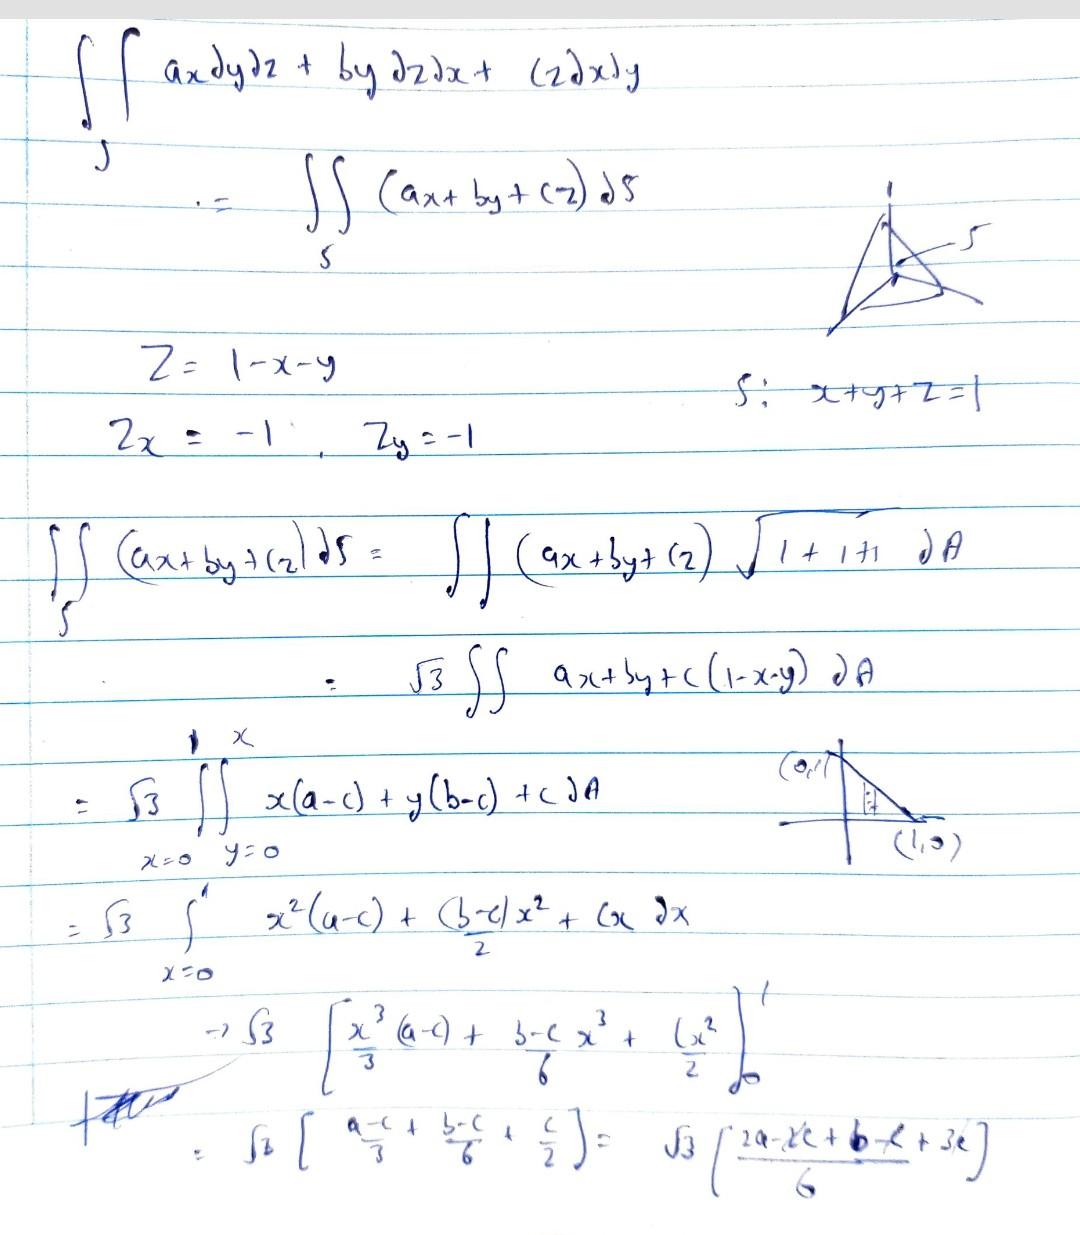 ∫∫ ax dydz + by dzdx + cz dxdy
S
= ∫∫ (ax + by + cz) dS
S
S
Z = 1-x-y
S: x+y+z=1
Zx = -1, Zy = -1
∫∫ (ax+by+cz) dS = ∫∫ (ax+by+cz) √1+1+1 dA
S
= √3 ∫∫ ax+by+c(1-x-y) dA
1 x
= √3 ∫∫ x(a-c) + y(b-c) + c dA
x=0 y=0
(0,1)
(1,0)
= √3 ∫ x²(a-c) + (b-c)x²/2 + cx dx
1
x=0
→ √3 [x³/3 (a-c) + b-c/6 x³ + cx²/2]
1
0
= √3 [a-c/3 + b-c/6 + c/2] = √3 [2a-2c+b-c+3c/6]